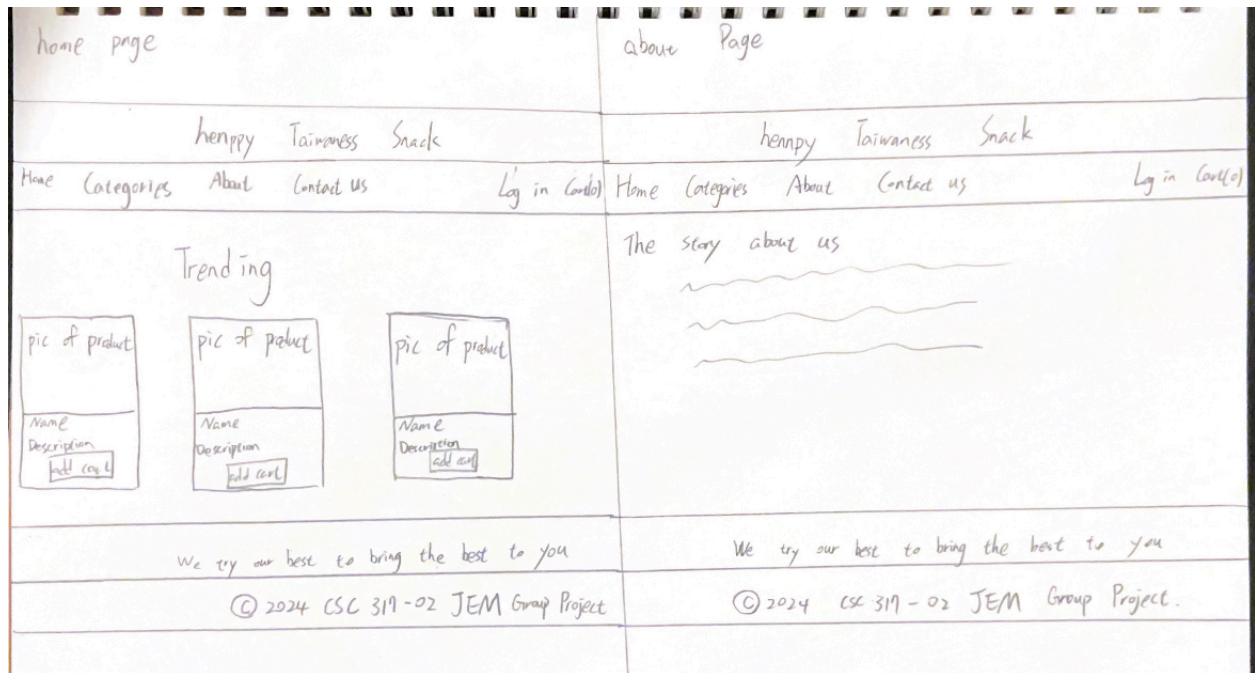 home page
henppy Taiwaness Snack
Home Categories About Contact us Log in Cart(0)
Trending
pic of product
Name
Description
add cart
pic of product
Name
Description
add cart
pic of product
Name
Description
add cart
We try our best to bring the best to you
© 2024 CSC 317-02 JEM Group Project
about Page
hennpy Taiwaness Snack
Home Categories About Contact us Log in Cart(0)
The story about us
We try our best to bring the best to you
© 2024 CSC 317-02 JEM Group Project.